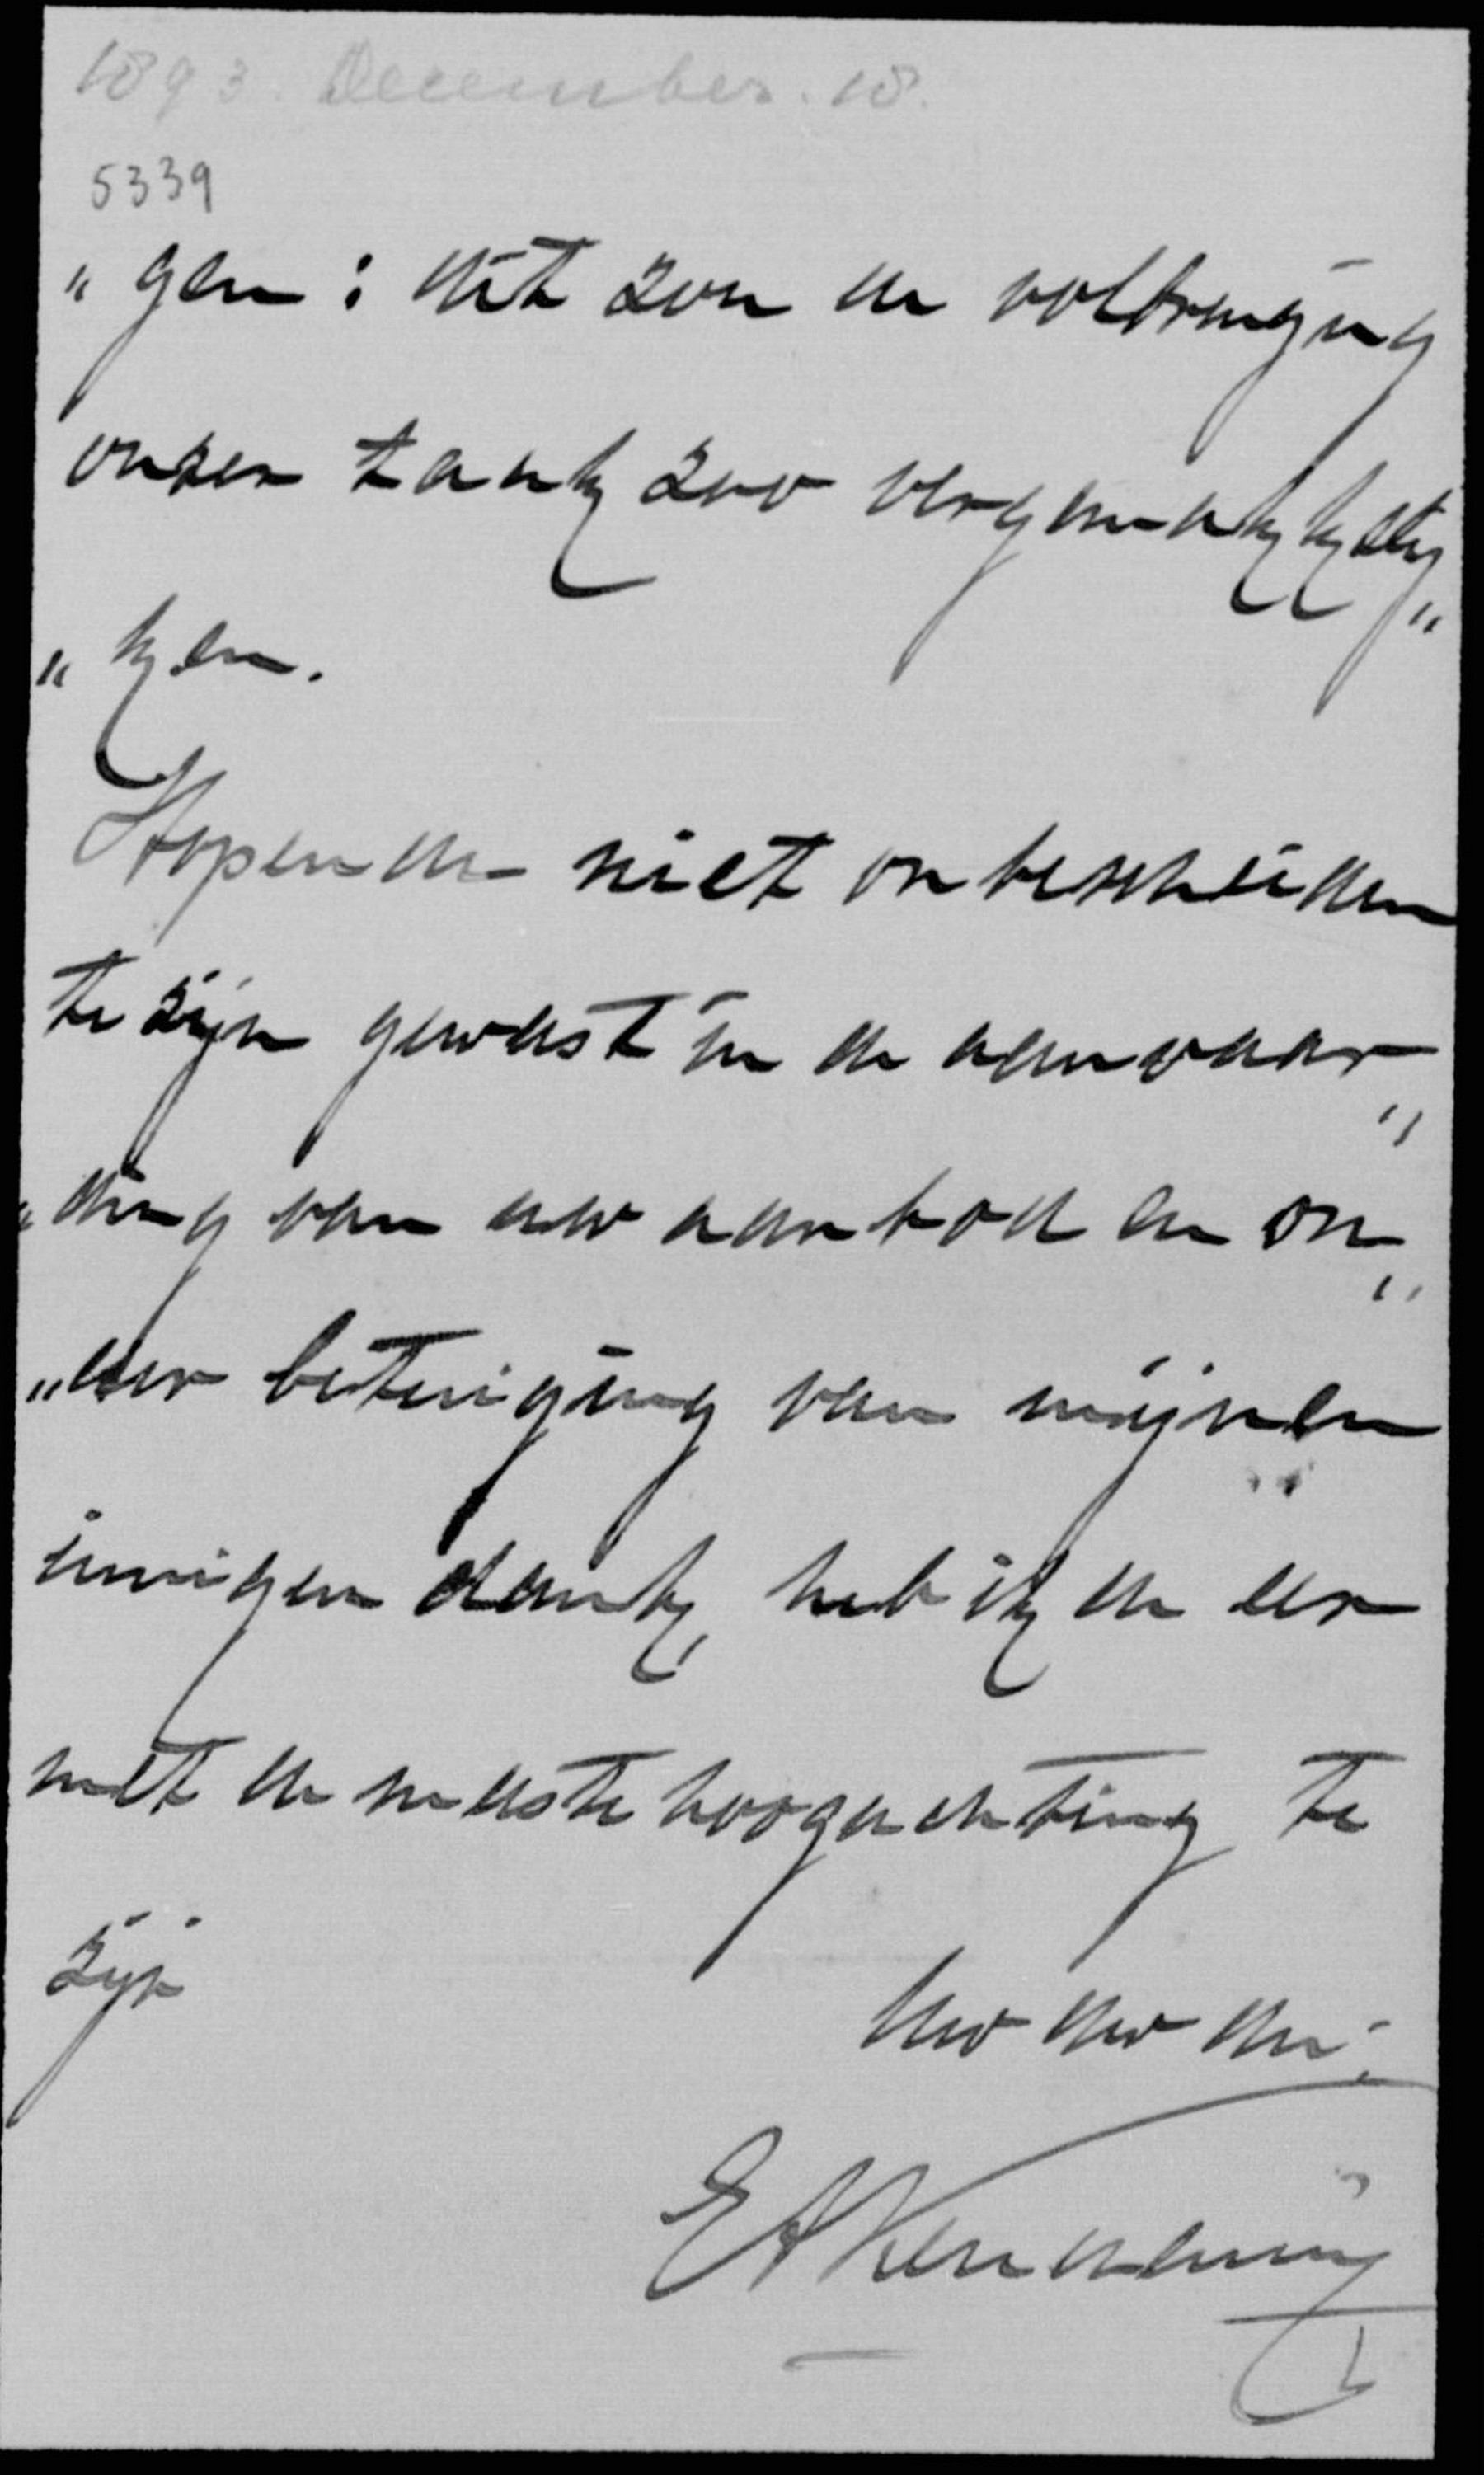 1893. December. 18.
5339
„gen: dit zou de volbrenging
onzer taak zoo vergemakkelij„
„ken.
Hopende niet onbescheiden
te zijn geweest in de aanvaar„
„ding van uw aanbod en on„
„der betuiging van mijnen
innigen dank, heb ik de eer
met de meeste hoogachting te
zijn
Uw dw dr.